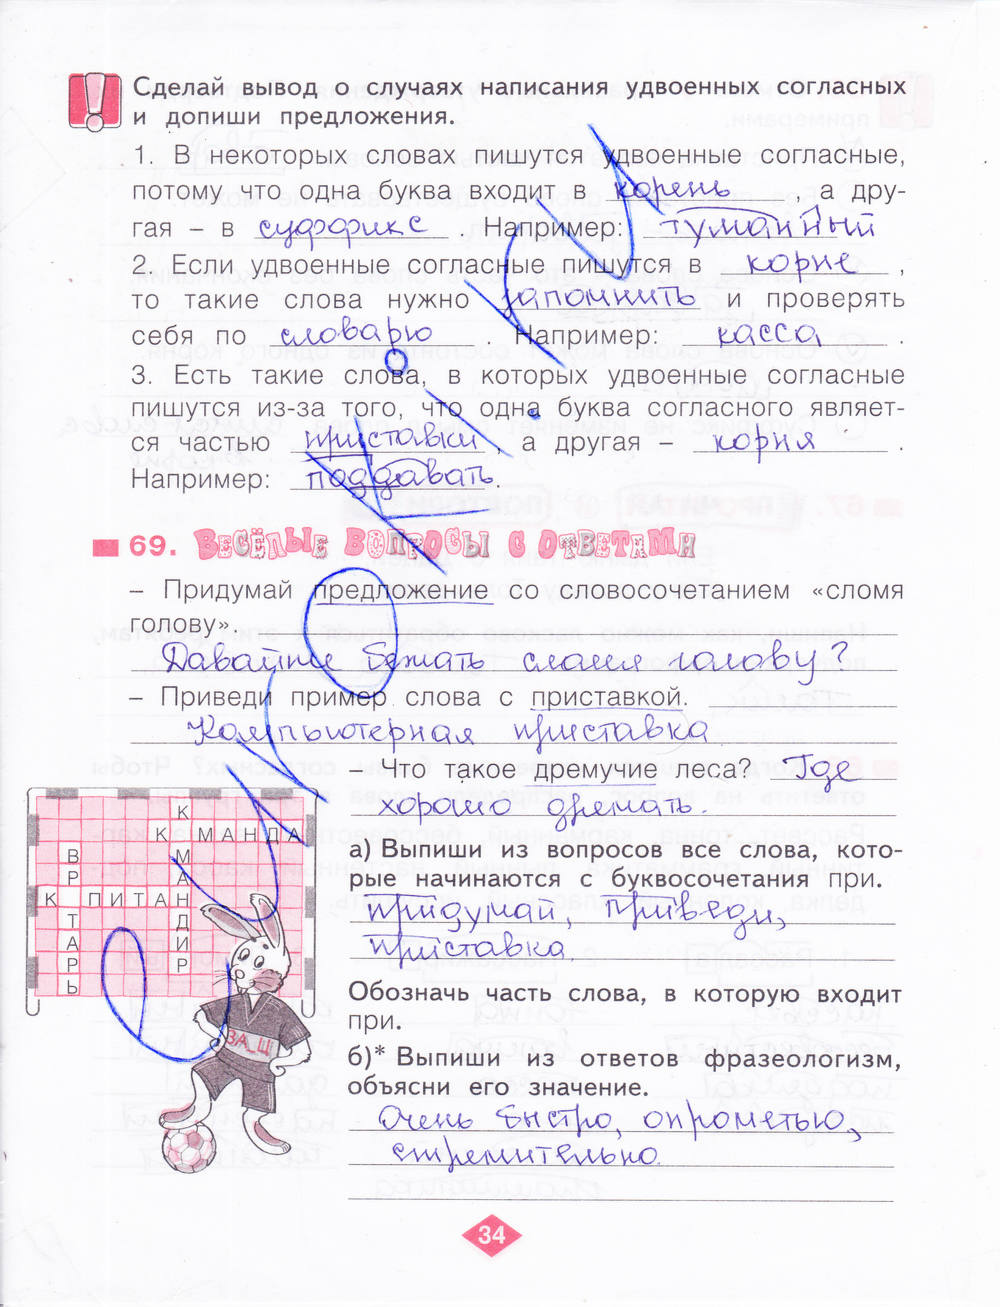 Сделай вывод о случаях написания удвоенных согласных
и допиши предложения.
1. В некоторых словах пишутся удвоенные согласные,
потому что одна буква входит в корень, а дру-
гая – в суффикс. Например: туманный
2. Если удвоенные согласные пишутся в корне,
то такие слова нужно запомнить и проверять
себя по словарю. Например: касса.
3. Есть такие слова, в которых удвоенные согласные
пишутся из-за того, что одна буква согласного являет-
ся частью приставки, а другая – корня.
Например: поддавать.
69. ВЕСЁЛЫЕ ВОПРОСЫ С ОТВЕТАМИ
– Придумай предложение со словосочетанием «сломя
голову».
Давайте бежать сломя голову?
– Приведи пример слова с приставкой.
Компьютерная приставка
– Что такое дремучие леса? Где
хорошо дремать.
а) Выпиши из вопросов все слова, кото-
рые начинаются с буквосочетания при.
придумай, приведи,
приставка.
Обозначь часть слова, в которую входит
при.
б)* Выпиши из ответов фразеологизм,
объясни его значение.
Очень быстро, опрометью,
стремительно.
К
К МАНДА
В М
Р А
К ПИТАН Н
Т Д
А И
Р Р
Ь
ЗА Щ
34